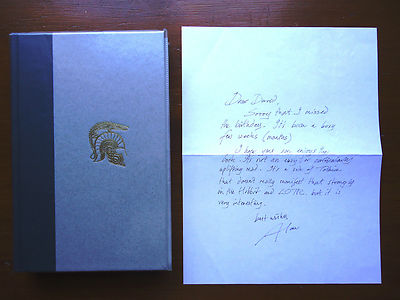 Dear David,
Sorry that I missed
the birthday. It's been a busy
few weeks (months)
I hope you can enjoy the
book. Its not an easy or particularly
uplifting read. Its a side of Tolkien
that doesn't really manifest that strongly
in the Hobbit and LOTR, but it is
very interesting.
best wishes,